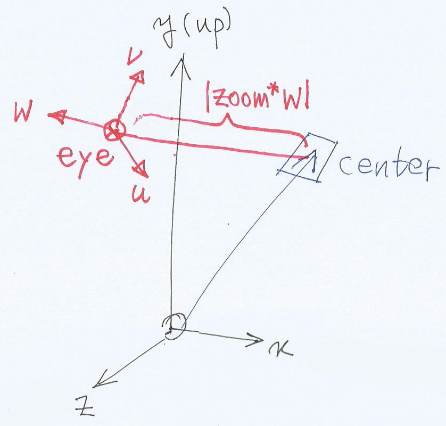 y(up)
v
|zoom*w|
w
eye
center
u
x
z